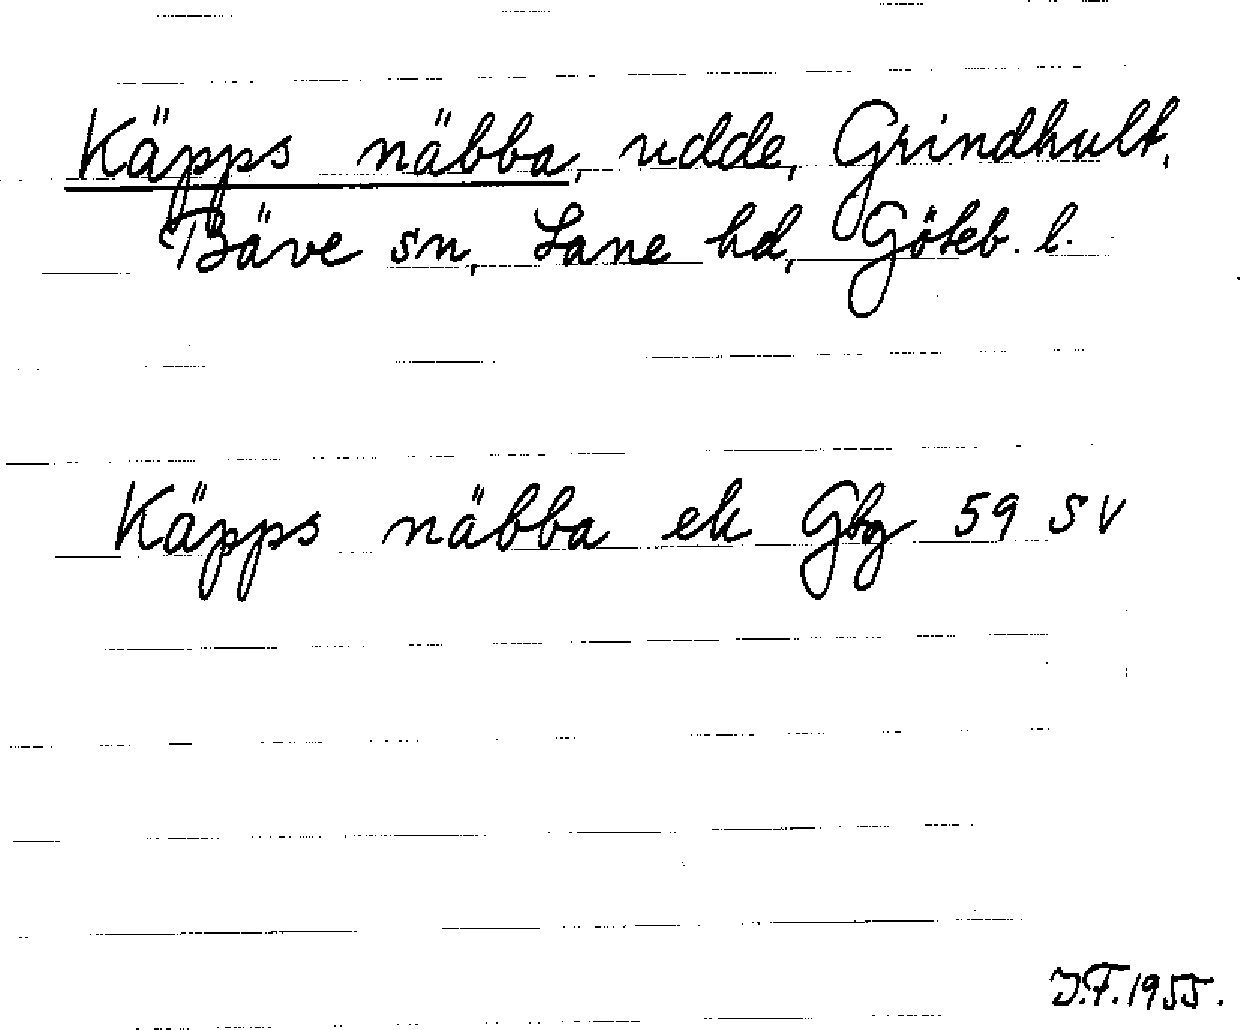 Käpps näbba, udde, Grindhult,
Bäve sn, Lane hd, Göteb. l.
Käpps näbba ek Gbg 59 SV
J.F. 1955.